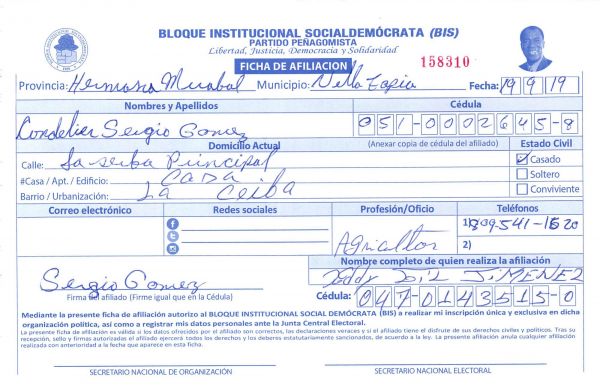 BLOQUE INSTITUCIONAL SOCIALDEMÓCRATA (BIS)
PARTIDO PEÑAGOMISTA
Libertad, Justicia, Democracia y Solidaridad
FICHA DE AFILIACION 158310
Provincia: Hermana Mirabal Municipio: Villa Tapia Fecha: 19 9 19
Nombres y Apellidos Cédula
Sergio Gomez 051-0002645-8
Domicilio Actual (Anexar copia de cédula del afiliado) Estado Civil
Calle: La seiba Principal Casado
#Casa / Apt. / Edificio: CASA Soltero
Barrio / Urbanización: LA Ceiba Conviviente
Correo electrónico Redes sociales Profesión/Oficio Teléfonos
1) 809-541-1520
Agricultor 2)
Nombre completo de quien realiza la afiliación
JIMENEZ
Sergio Gomez
Firma del afiliado (Firme igual que en la Cédula) Cédula: 047-0143515-0
Mediante la presente ficha de afiliación autorizo al BLOQUE INSTITUCIONAL SOCIAL DEMÓCRATA (BIS) a realizar mi inscripción única y exclusiva en dicha
organización política, así como a registrar mis datos personales ante la Junta Central Electoral.
La presente ficha de afiliación es válida si los datos ofrecidos por el afiliado son correctos, las declaraciones veraces y si el afiliado tiene el disfrute de sus derechos civiles y políticos. Tras su
recepción, sello y firmas autorizadas el afiliado ejercerá todos los derechos y los deberes estatutariamente sancionados, de acuerdo a la ley. La presente afiliación anula cualquier afiliación
realizada con anterioridad a la fecha que aparece en esta ficha.
SECRETARIO NACIONAL DE ORGANIZACIÓN SECRETARIO NACIONAL ELECTORAL